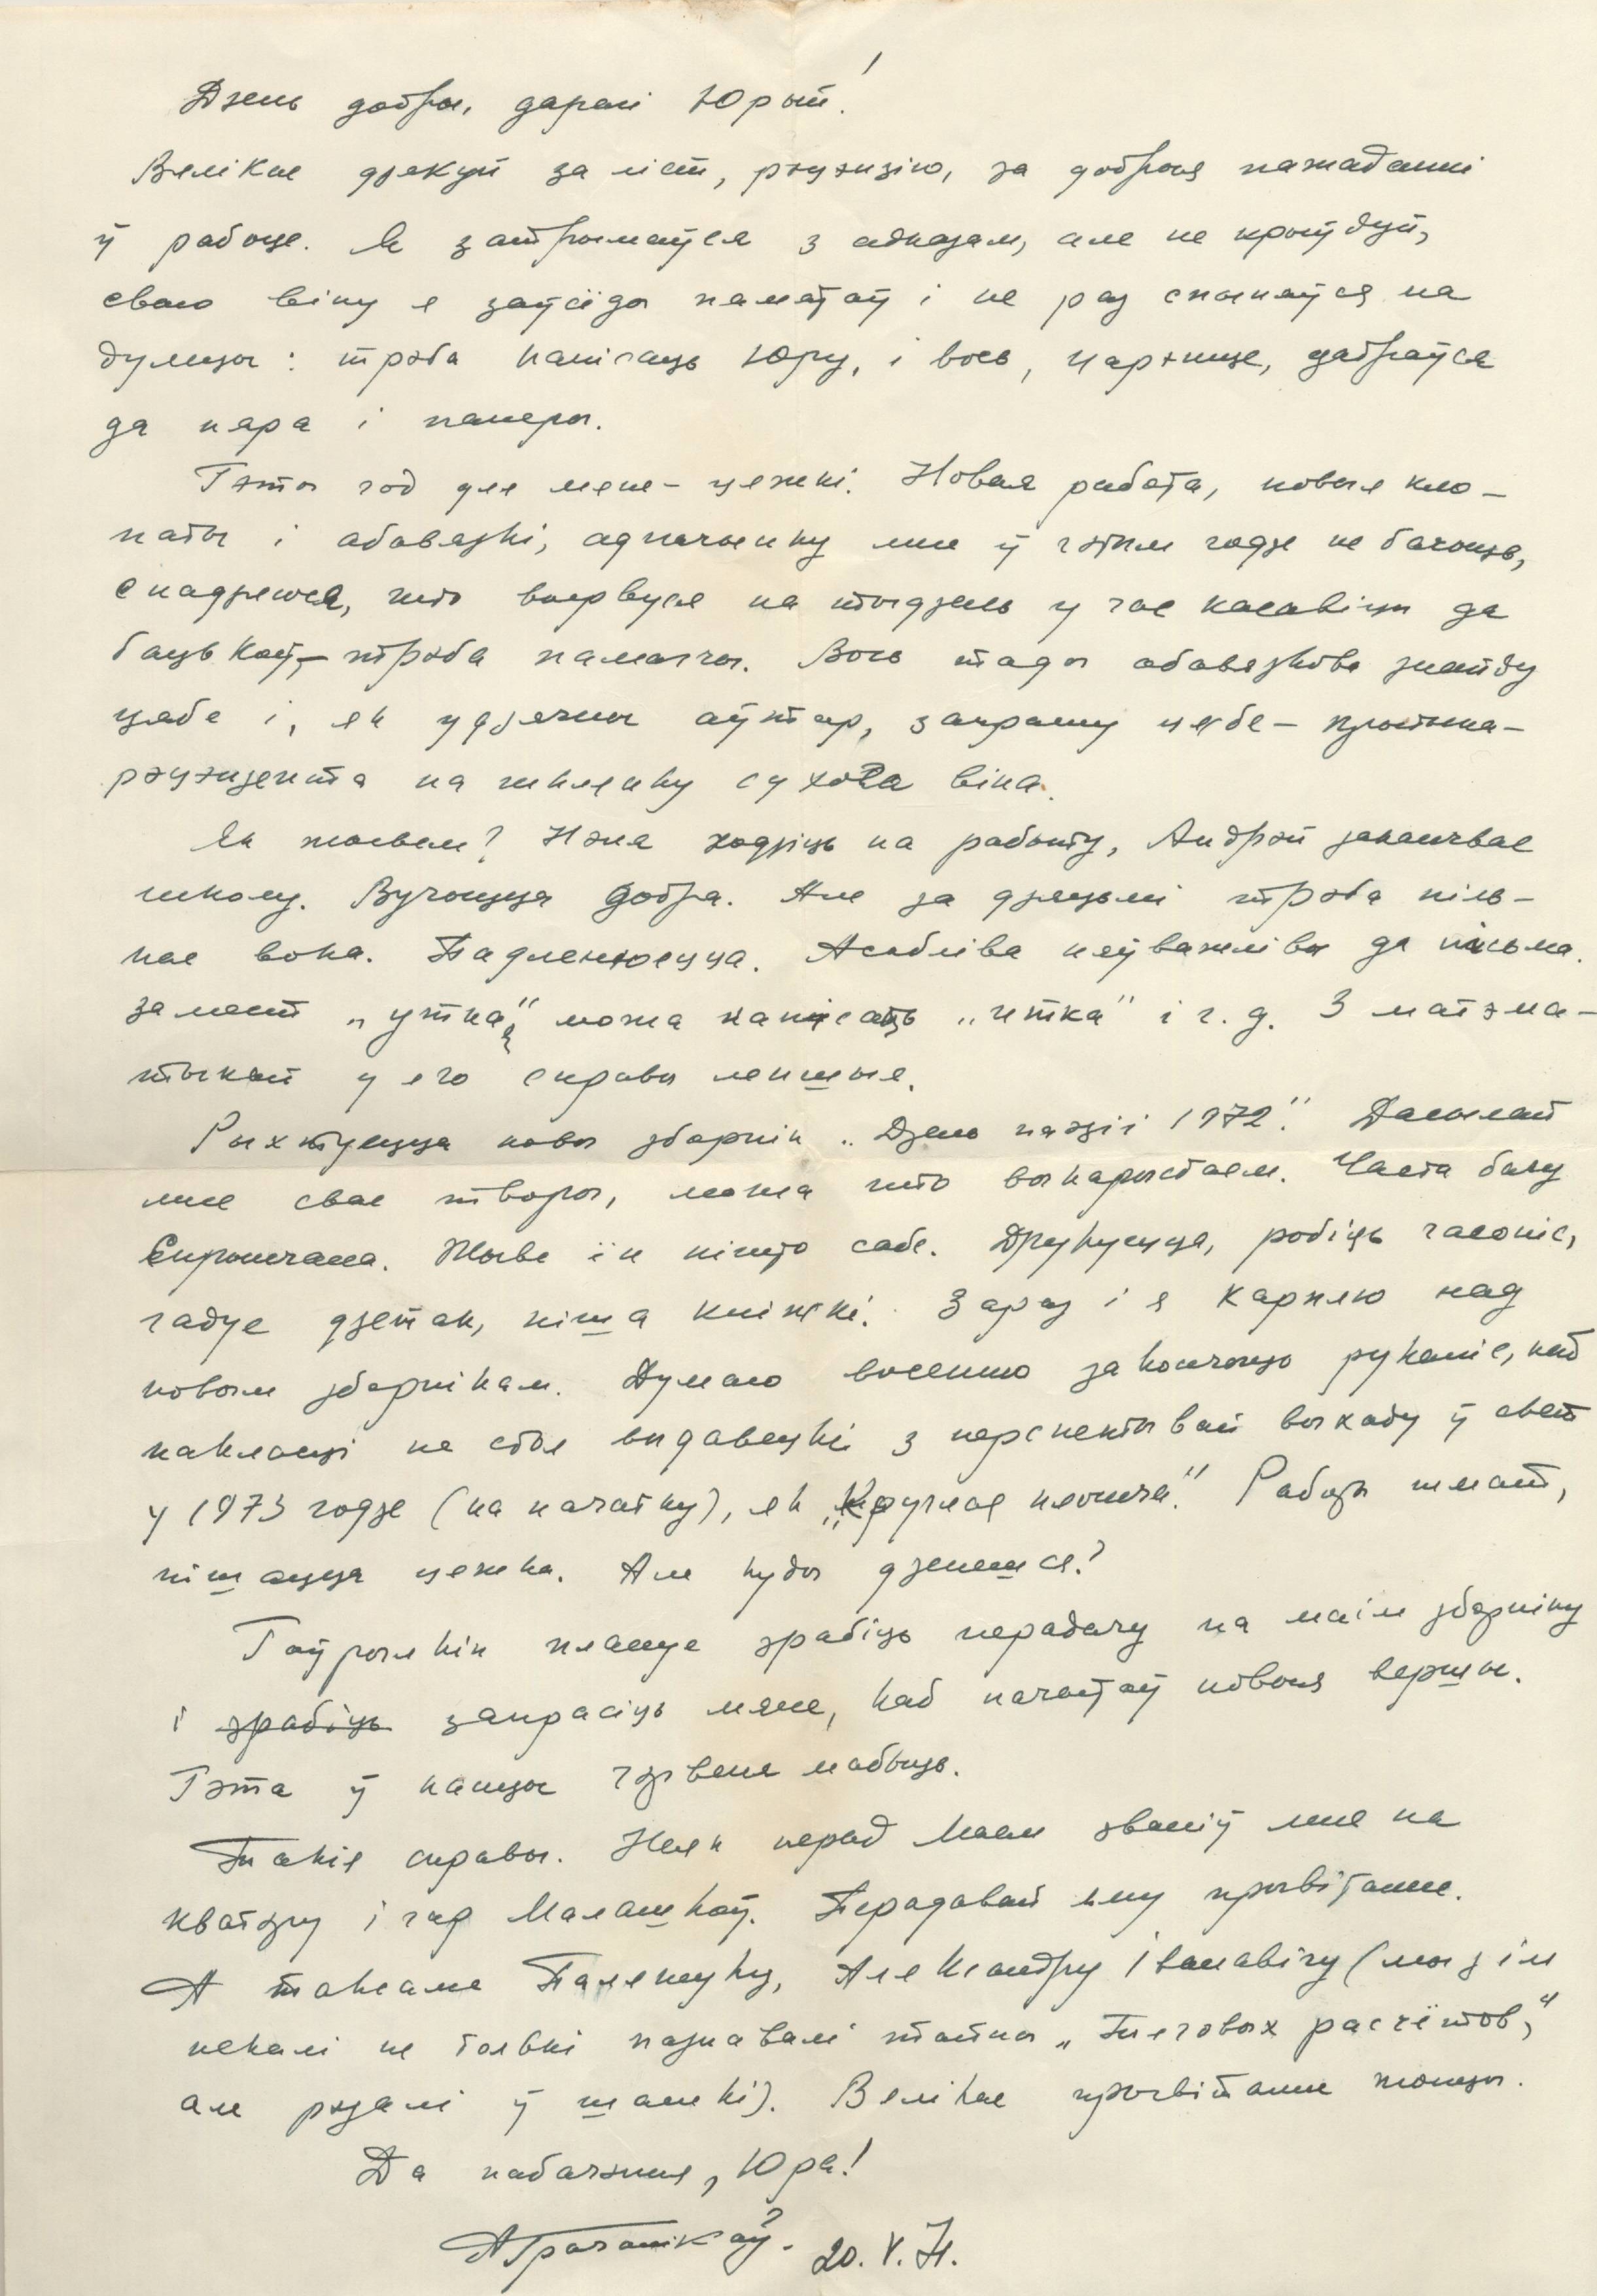 Дзень добры, дарагі Юрый!
Вялікае дзякуй за ліст, рэцэнзію, за добрыя пажаданні
ў рабоце. Я затрымаўся з адказам, але не крыўдуй,
сваю віну я заўсёды памятаў і не раз спыняўся на
думцы: трэба напісаць Юру, і вось, нарэшце, дабраўся
да пяра і паперы.
Гэты год для мяне – цяжкі. Новая работа, новыя кло-
паты і абавязкі, адпачынку мне ў гэтым годзе не бачыць,
спадзяюся, што вырвуся на тыдзень у час касавіцы да
бацькоў, – трэба памагчы. Вось тады абавязкова знайду
цябе і, як удзячны аўтар, запрашу цябе –
рэцэнзента на шклянку сухога віна.
Як жывем? Нэля ходзіць на работу, Андрэй заканчвае
школу. Вучыцца добра. Але за дзецьмі трэба піль-
нае вока. Падленьваецца. Асабліва няўважлівы да пісьма.
Замест „утка", можа напісаць „итка" і г. д. З матэма-
тыкай у яго справы лепшыя.
Рыхтуецца новы зборнік „Дзень паэзіі 1972". Дасылай
мне свае творы, можа што выкарыстаем. Часта бачу
Сіпрончана. Жыве ён нішто сабе. Друкуецца, робіць часопіс,
гадуе дзетак, піша кніжкі. Зараз і я карплю над
новым зборнікам. Думаю восенню закончыць рукапіс, каб
пакласці на стол выдавецкі з перспектывай выхаду ў свет
у 1973 годзе (на пачатку), як „Кругная плошча". Работы шмат,
пішацца цяжка. Але куды дзенешся?
Гаўрылкін плануе зрабіць перадачу па маім зборніку
і зрабіць запрасіць мяне, каб пачытаў новыя вершы.
Гэта ў канцы чэрвеня мабыць.
Такія справы. Неяк перад Маем званіў мне на
кватэру Малашкоў. Перадавай яму прывітанне.
А таксама Палянецку, Аляксандру Іванавічу (мы з ім
некалі не толькі пазнавалі тайны „Тяговых расчётов",
але рэзалі ў шашкі). Вялікае прывітанне жонцы.
Да пабачэння, Юра!
АГрачанікаў. 20.V.71.